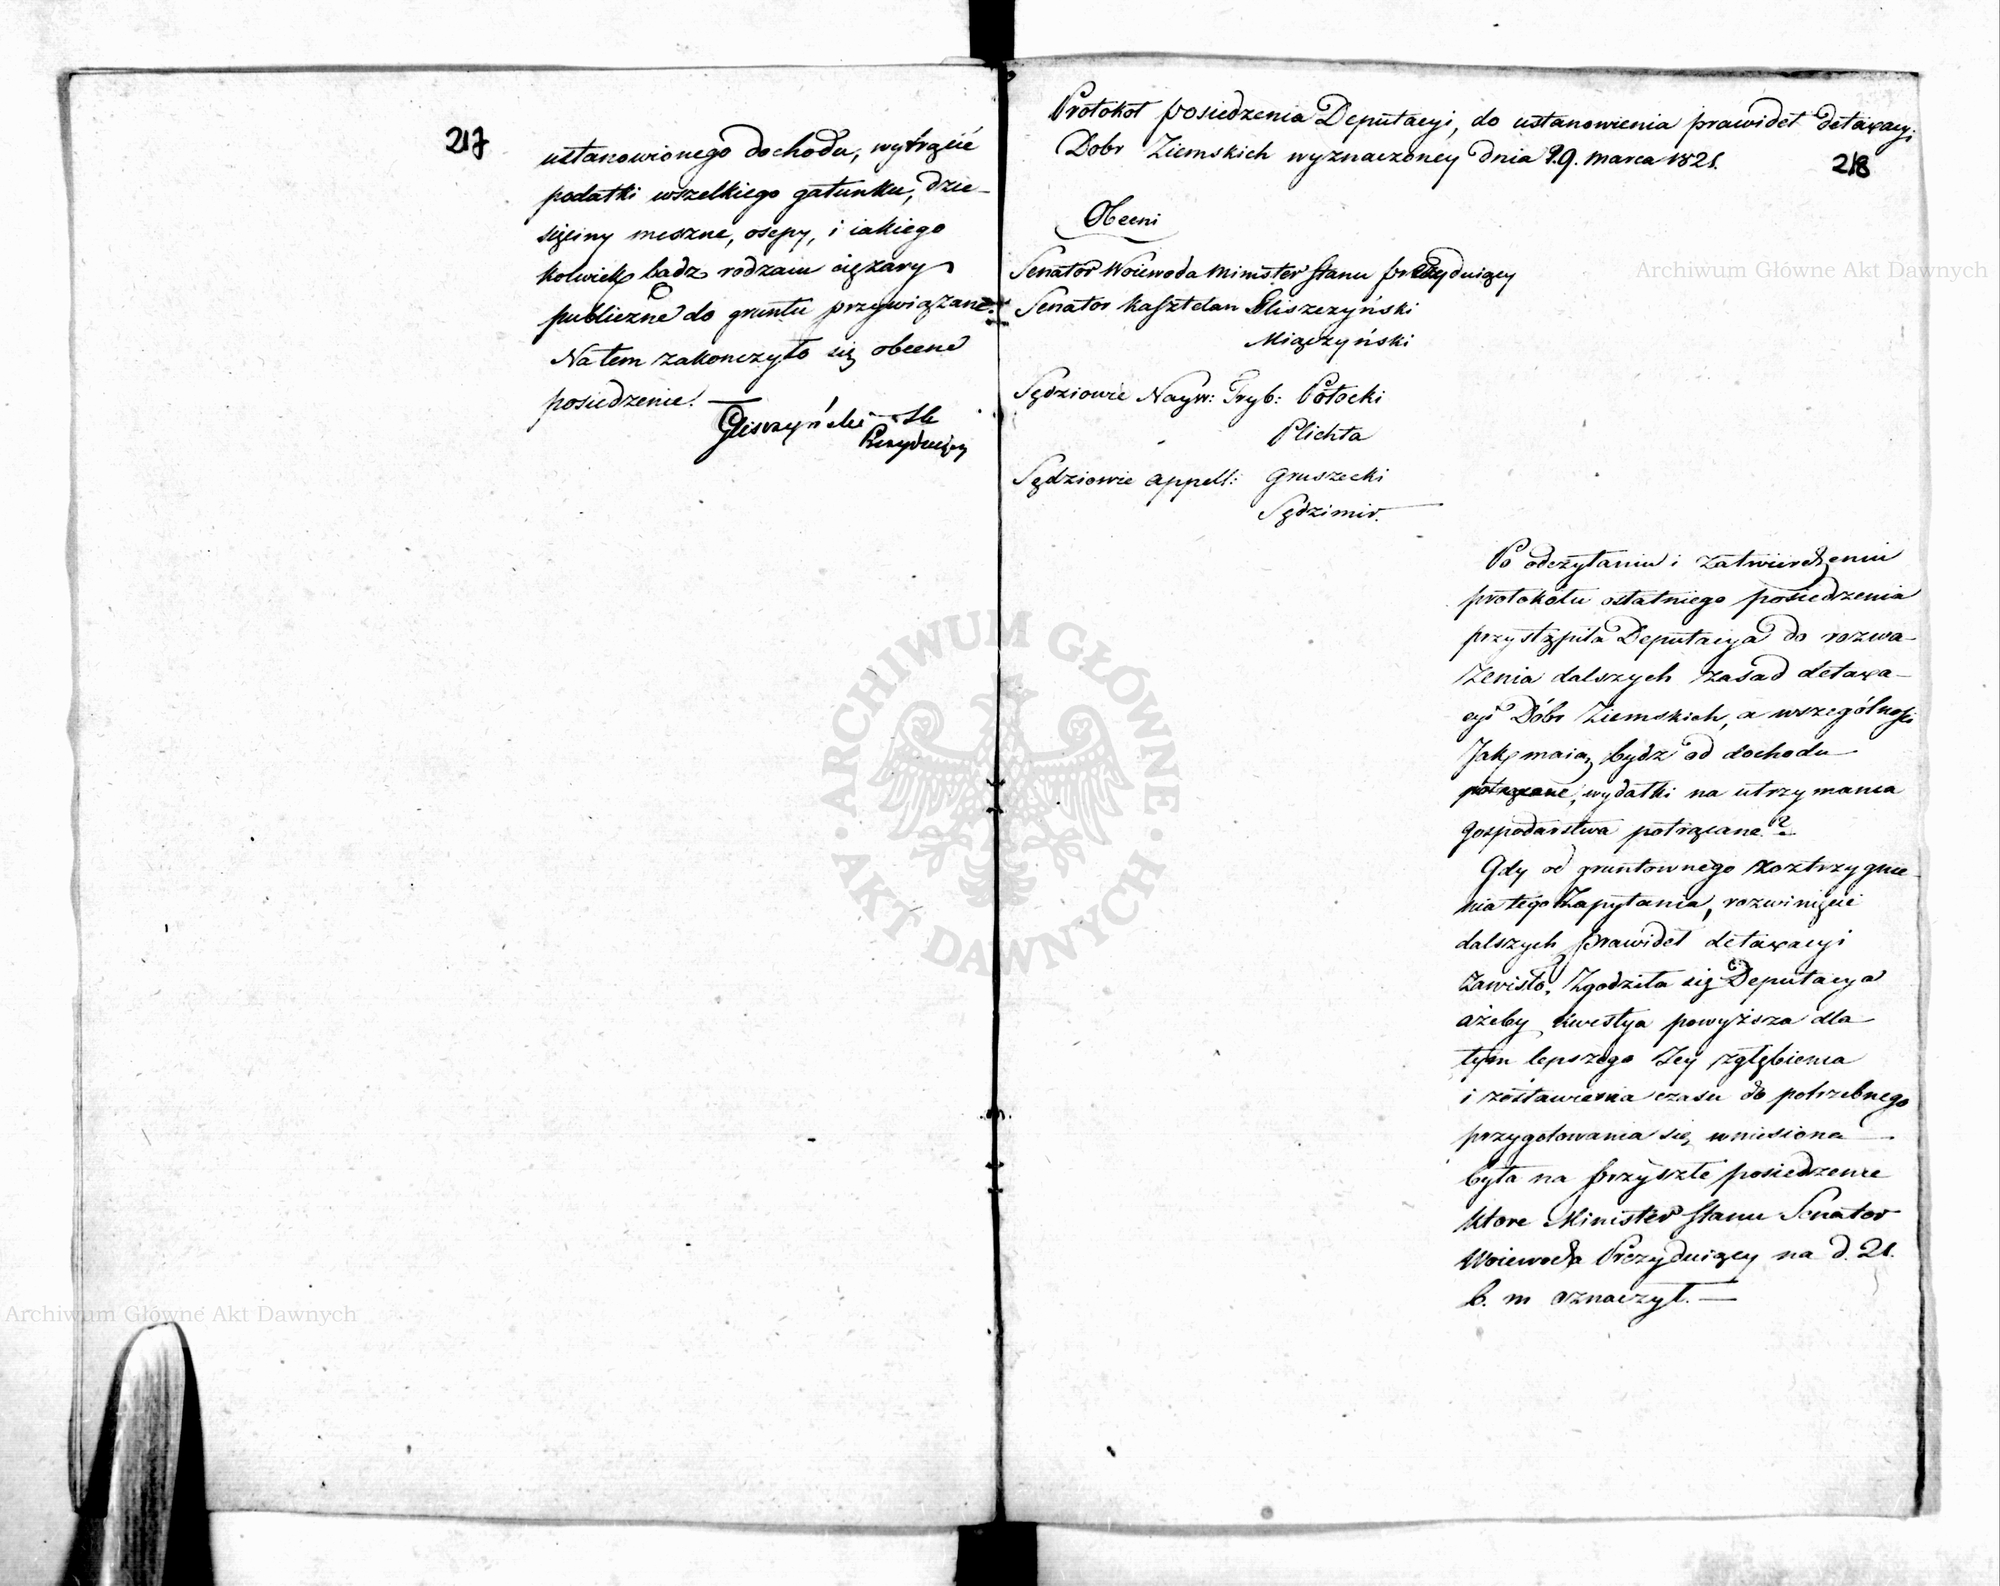 217
ustanowionego dochodu, wytrącić
podatki wszelkiego gatunku, dzie-
sięciny meszne, osepy, i iakiego
kolwiek bądz rodzaiu ciężary
publiczne do gruntu przywiązane.
Na tem zakonczyło się obecne
posiedzenie. —
Gliszczyński SK
Prezyduiący
Protokoł posiedzenia Deputacyi, do ustanowienia prawideł detaxacyi
Dobr Ziemskich wyznaczoney dnia 19. marca 1821.
218
Obecni
Senator Woiewoda Minister Stanu prezyduiący
Senator Kasztelan Gliszczyński
Miączyński
Sędziowie Nayw: Tryb: Potocki
Plichta
Sędziowie appell: Gruszecki
Sędzimir.
Po odczytaniu i zatwierdzeniu
protokołu ostatniego posiedzenia
przystąpiła Deputacya do rozwa-
żenia dalszych zasad detaxa-
cyi Dóbr Ziemskich, a wszególności
Jak maią bydz od dochodu
potrącane, wydatki na utrzymania
gospodarstwa potrącane?
Gdy od gruntownego roztrzygnie-
nia tego Zapytania, rozwinięcie
dalszych prawideł detaxacyi
zawisło, Zgodziła się Deputacya
ażeby kwestya powyższa dla
tym lepszego Jey zgłębienia
i zostawienia czasu do potrzebnego
przygotowania się wniesiona
była na przyszłe posiedzenie
ktore Minister Stanu Senator
Woiewoda Prezyduiący na d. 21.
b. m oznaczył. —
Archiwum Główne Akt Dawnych
ARCHIWUM GŁÓWNE · AKT DAWNYCH ·
Archiwum Główne Akt Dawnych